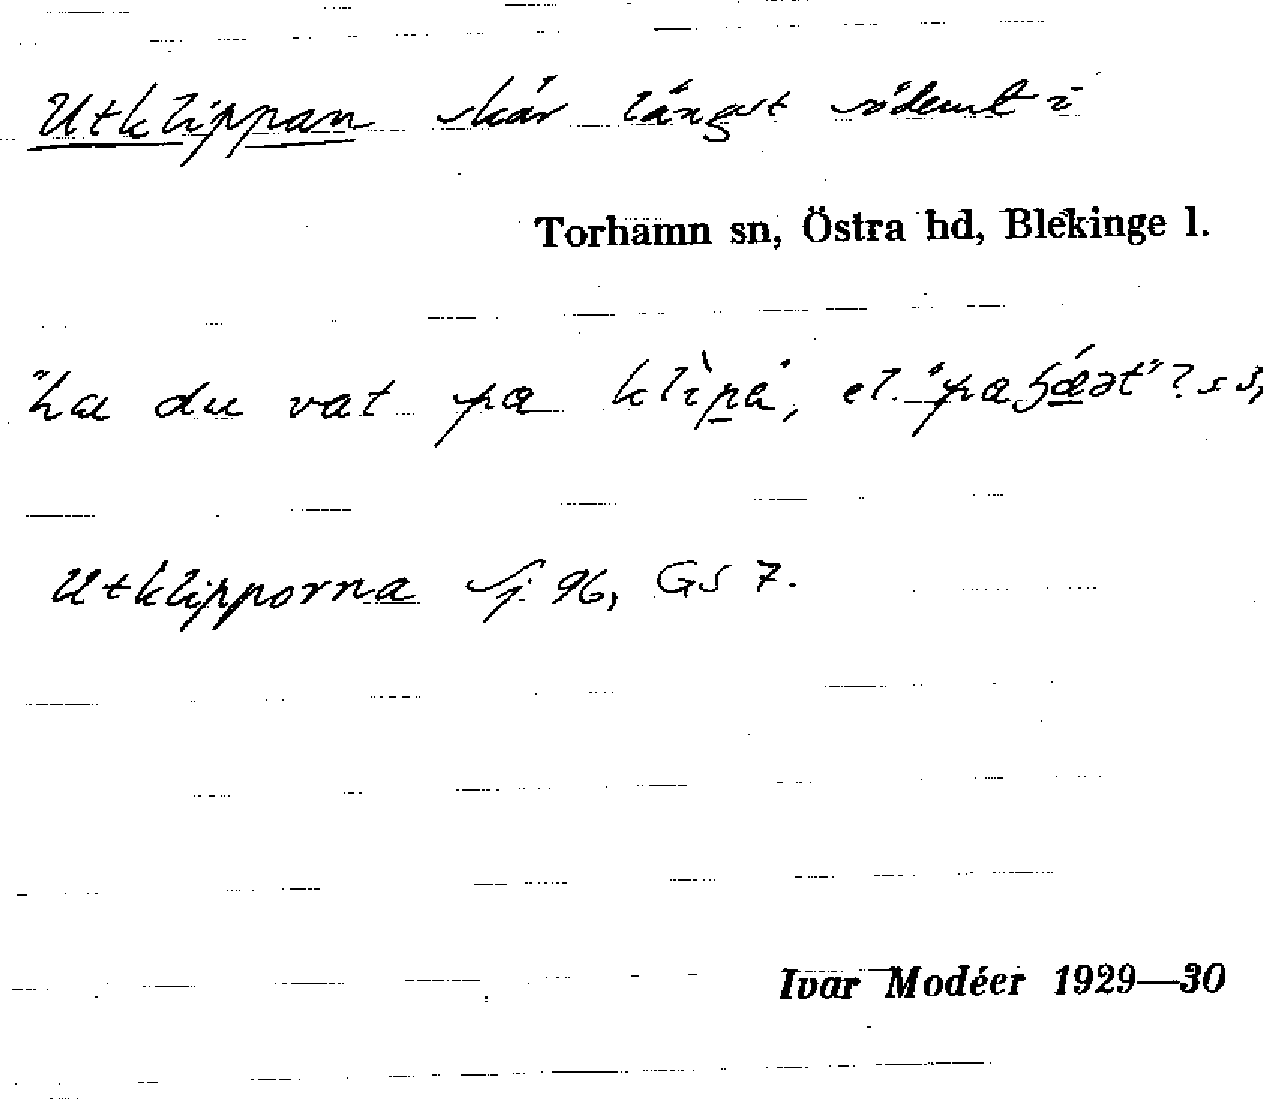 Utklippan skär längst söderut i
Torhamn sn, Östra hd, Blekinge l.
"ha du vat pa klìpa", el. "pa
Utklipporna Sj. 96, GS 7.
Ivar Modéer 1929—30